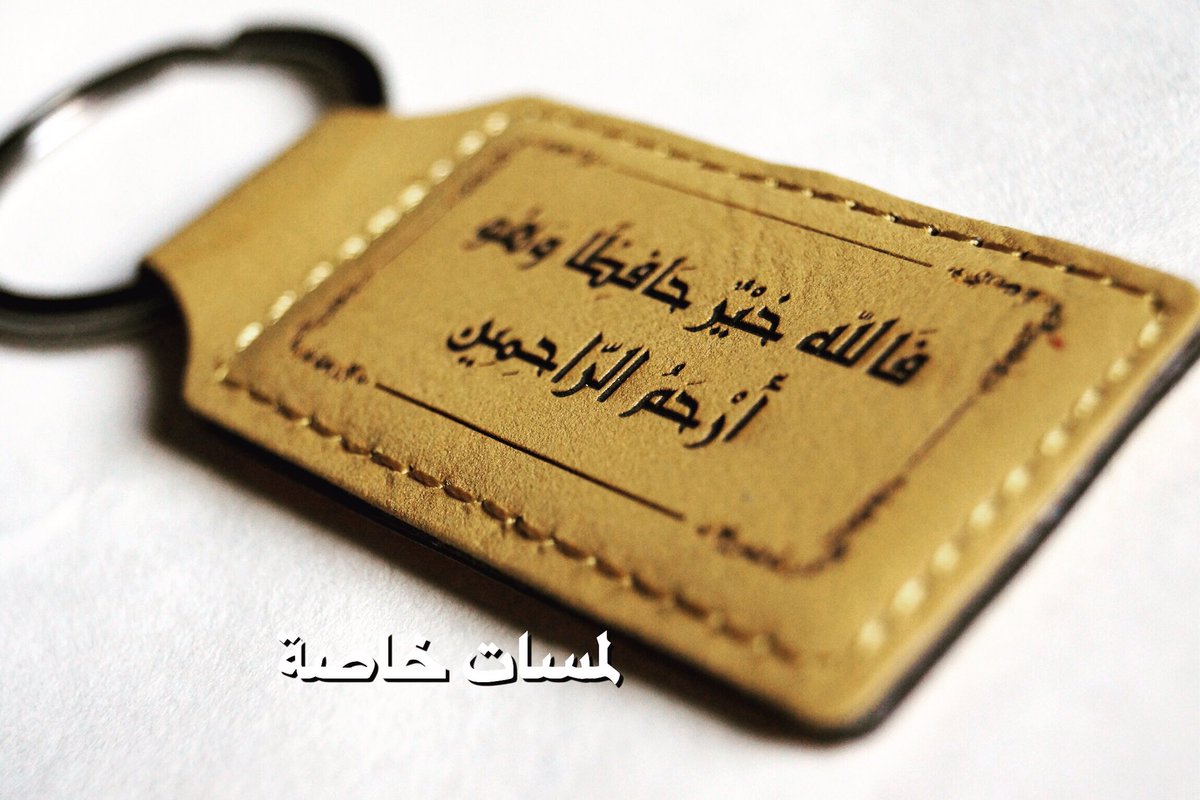 فَاللَّهُ خَيْرٌ حَافِظًا وَهُوَ
أَرْحَمُ الرَّاحِمِين
لمسات خاصة